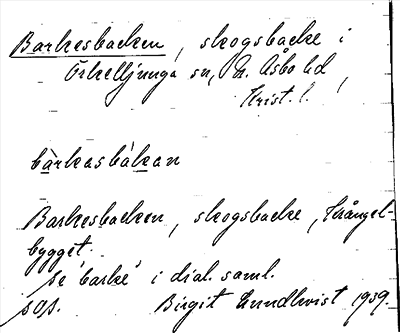 Barkesbacken, skogsbacke i
Örkelljunga sn, N. Åsbo hd,
Krist. l.
bàrkasbàkan
Barkesbacken, skogsbacke, Krångel-
bygget.
se 'barke' i dial. saml.
sos. Birgit Lundkvist 1939.